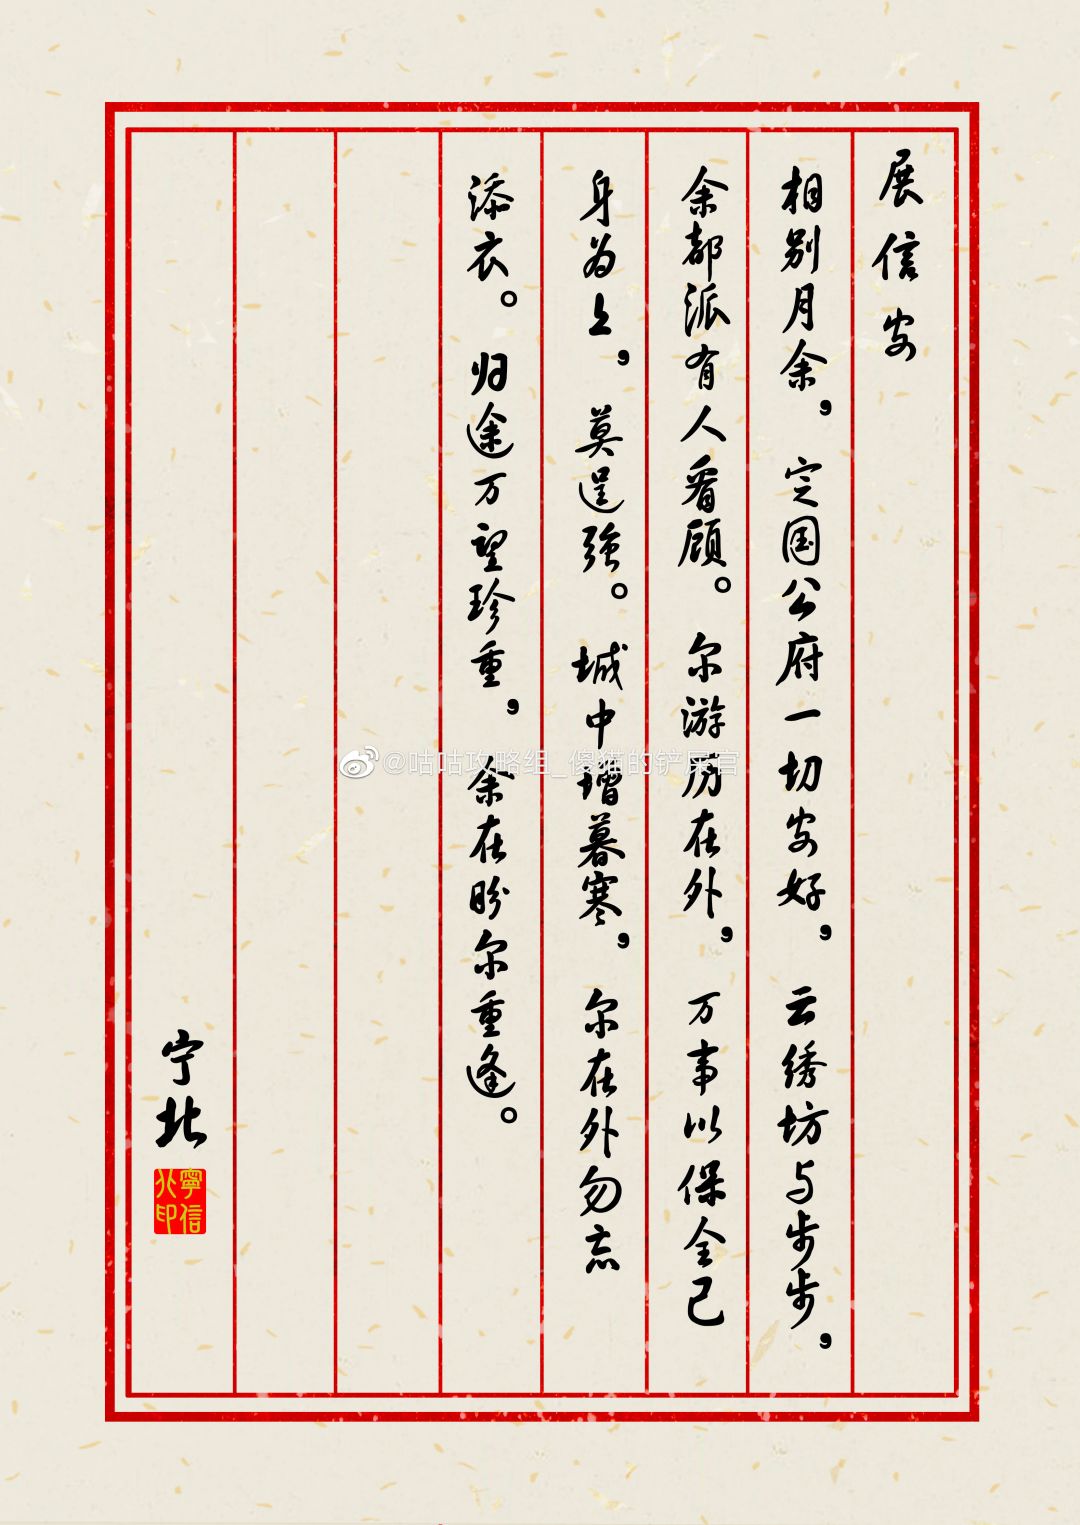 展信安
相别月余，定国公府一切安好，云绣坊与步步，
余都派有人看顾。尔游历在外，万事以保全己
身为上，莫逞强。城中增暮寒，尔在外勿忘
添衣。归途万望珍重，余在盼尔重逢。
宁北
寧北信印
@咕咕攻略组_傻猫的铲屎官